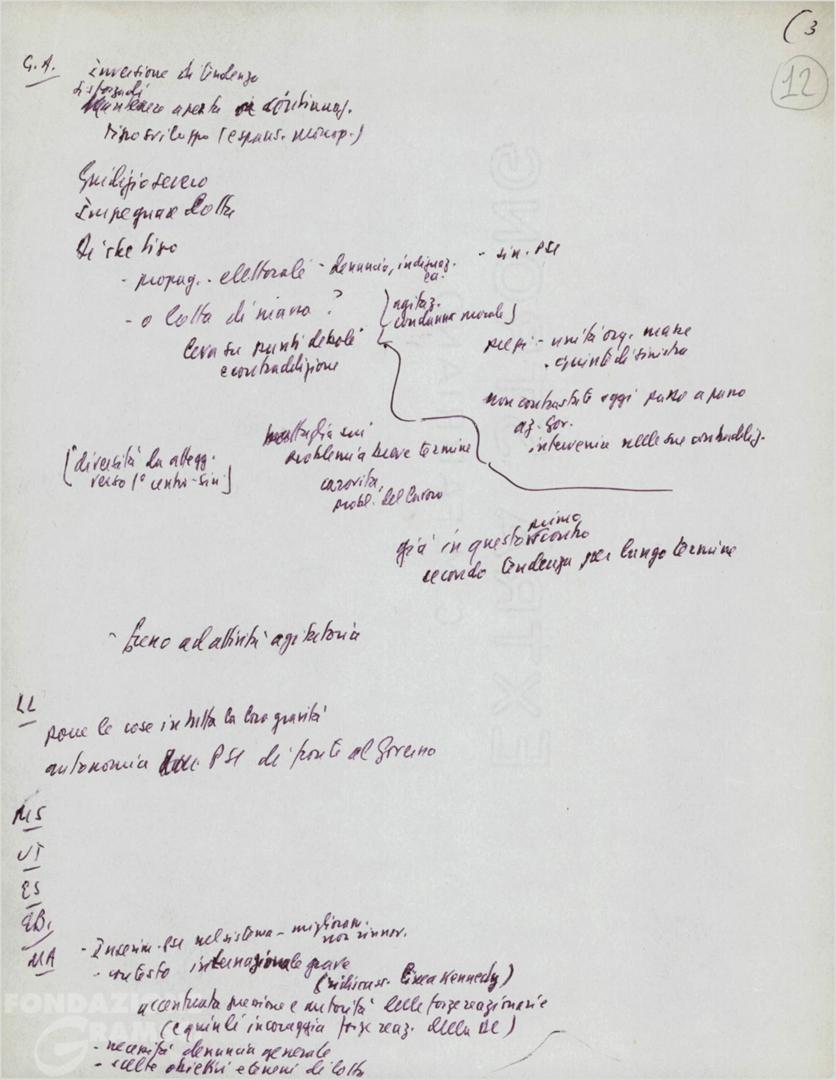 (3
12
G.A. Inversione di tendenza
si sforza di
Mantenere aperta continuaz.
tipo sviluppo (espans. monop.)
Giudizio severo
Impegnare lotta
Di che tipo
- propag. elettorale - denuncia, indignaz. - sin. PSI
ecc.
- o lotta di massa? [agitaz.
condanna morale]
leva su punti deboli
e contraddizione
- unità org. masse
. quinte di sinistra
non contrastate oggi passo a passo
az. gov.
intervenire nelle sue contraddiz.
battaglia sui
problemi a breve termine
carovita,
probl. del lavoro
[diversità da attegg.
verso 1° centro-sin.]
già in questo primo
scontro
secondo tendenza per lungo termine
- freno ad attività agitatoria
LL
pone le cose in tutta la loro gravità
autonomia PSI di fronte al Governo
MS
UT
ES
EB.
MA - Inserim. PSI nel sistema - miglioram.
non rinnov.
- contesto internazionale grave
( linea Kennedy)
accentuata pressione e autorità delle forze reazionarie
(e quindi incoraggia forze reaz. della DC)
- necessità denuncia generale
- scelta obiettivi e terreni di lotta
FONDAZIONE
GRAMSCI